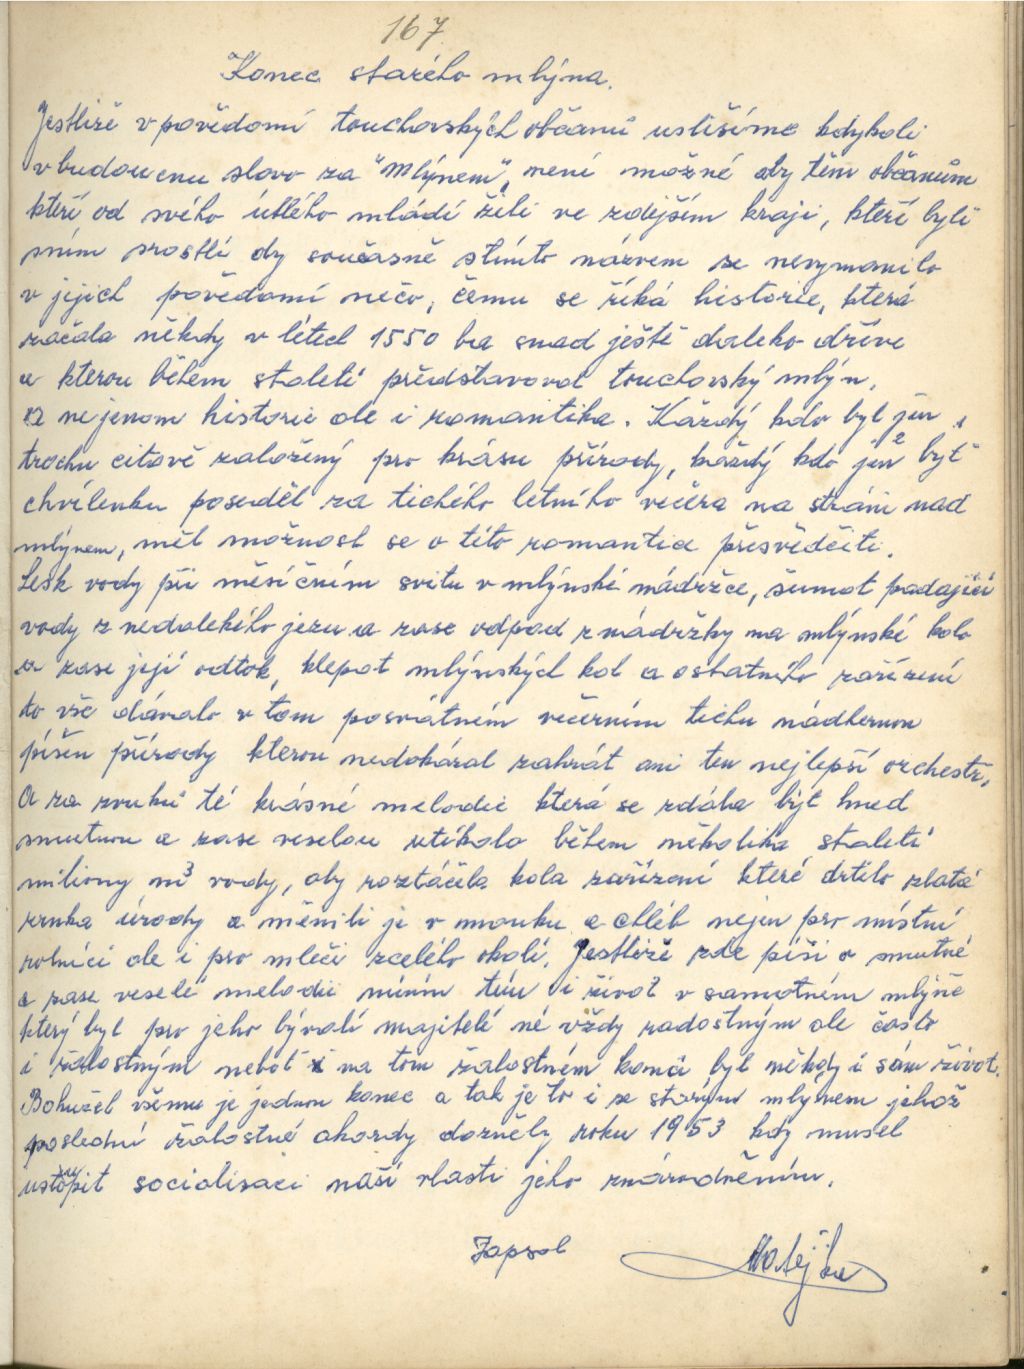 167
Konec starého mlýna.
Jestliže v povědomí touchovských občanů uslišíme kdykoli
v budoucnu slovo za "Mlýnem", není možné aby těm občanům
kteří od svého útlého mládí žili ve zdejším kraji, kteří byli
sním srostlí by současně stímto názvem se nevymanilo
v jejich povědomí něčo, čemu se říká historie, která
začala někdy v létech 1550 ba snad ještě daleko dříve
a kterou během staletí představoval touchovský mlýn.
a nejenom historie ale i romantika. Každý kdo byl jen
trochu citově založený pro krásu přírody, každý kdo jen byť
chvilenku poseděl za tichého letního večera na stráni nad
mlýnem, měl možnost se o této romantice přesvědčiti.
Lesk vody při měsíčním svitu v mlýnské nádržce, šumot padající
vody z nedalekého jezu a zase odpad z nádržky na mlýnské kolo
a zase její odtok, klepot mlýnských kol a ostatního zařízení
to vše dávalo v tom posvátném večerním tichu nádhernou
píseň přírody kterou nedokázal zahrát ani ten nejlepší orchestr.
A za zvuků té krásné melodie která se zdála být hned
smutnou a zase veselou utíkalo během několika staletí
miliony m³ vody, aby roztáčela kola zařízení které drtilo zlatá
zrnka úrody a měnili je v mouku a chléb nejen pro místní
rolníci ale i pro mleči zcelého okolí. Jestliže zde píši o smutné
a zase veselé melodii míním tím i život v samotném mlýně
který byl pro jeho bývalí majitelé né vždy radostným ale často
i žalostným neboť i na tom žalostném konci byl někdy i sám život.
Bohužel všemu je jednou konec a tak je to i se starým mlýnem jehož
poslední žalostné akordy dozněly roku 1953 kdy musel
ustoupit socialisaci naší vlasti jeho znárodněním.
Zapsal Matějka